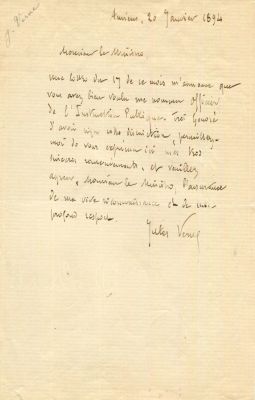 J. Verne
Amiens, 20 Janvier 1894
Monsieur le Ministre,
Une lettre du 17 de ce mois m'annonce que
vous avez bien voulu me nommer Officier
de l'Instruction Publique. Très honoré
d'avoir reçu cette distinction, permettez-
moi de vous exprimer ici mes très
sincères remerciements, et veuillez
agréer, Monsieur le Ministre, l'assurance
de ma vive reconnaissance et de mon
profond respect.
Jules Verne